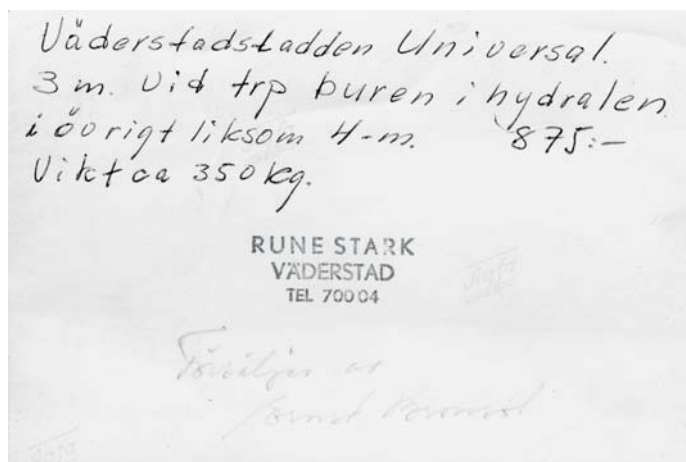 Väderstadsladden Universal.
3 m. Vid trp buren i hydralen
i övrigt liksom 4-m. 875:-
Vikt ca 350 kg.
RUNE STARK
VÄDERSTAD
TEL 700 04
Försäljes av
Ernst